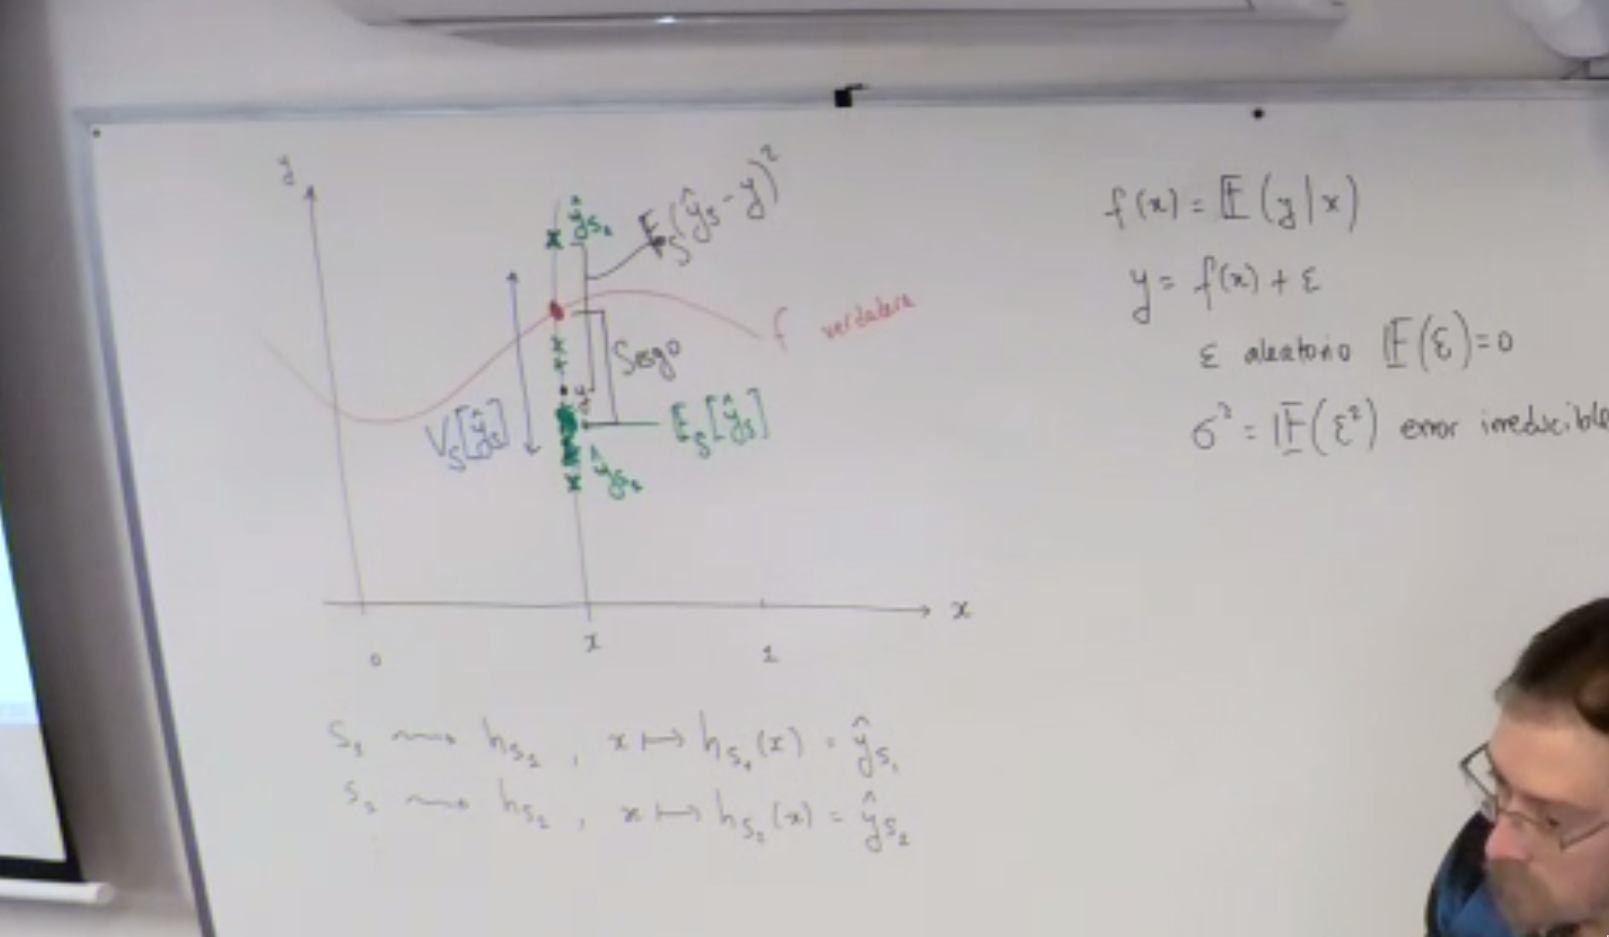 y
ŷ_{S_1}
E_S(ŷ_S - y)²
f verdadera
Sesgo
y
V_S[ŷ_S]
E_S[ŷ_S]
ŷ_{S_2}
x
0
x
1
S_1 ⟿ h_{S_1}, x ↦ h_{S_1}(x) = ŷ_{S_1}
S_2 ⟿ h_{S_2}, x ↦ h_{S_2}(x) = ŷ_{S_2}
f(x) = 𝔼(y|x)
y = f(x) + ε
ε aleatorio 𝔼(ε)=0
σ² = 𝔼(ε²) error irreducible